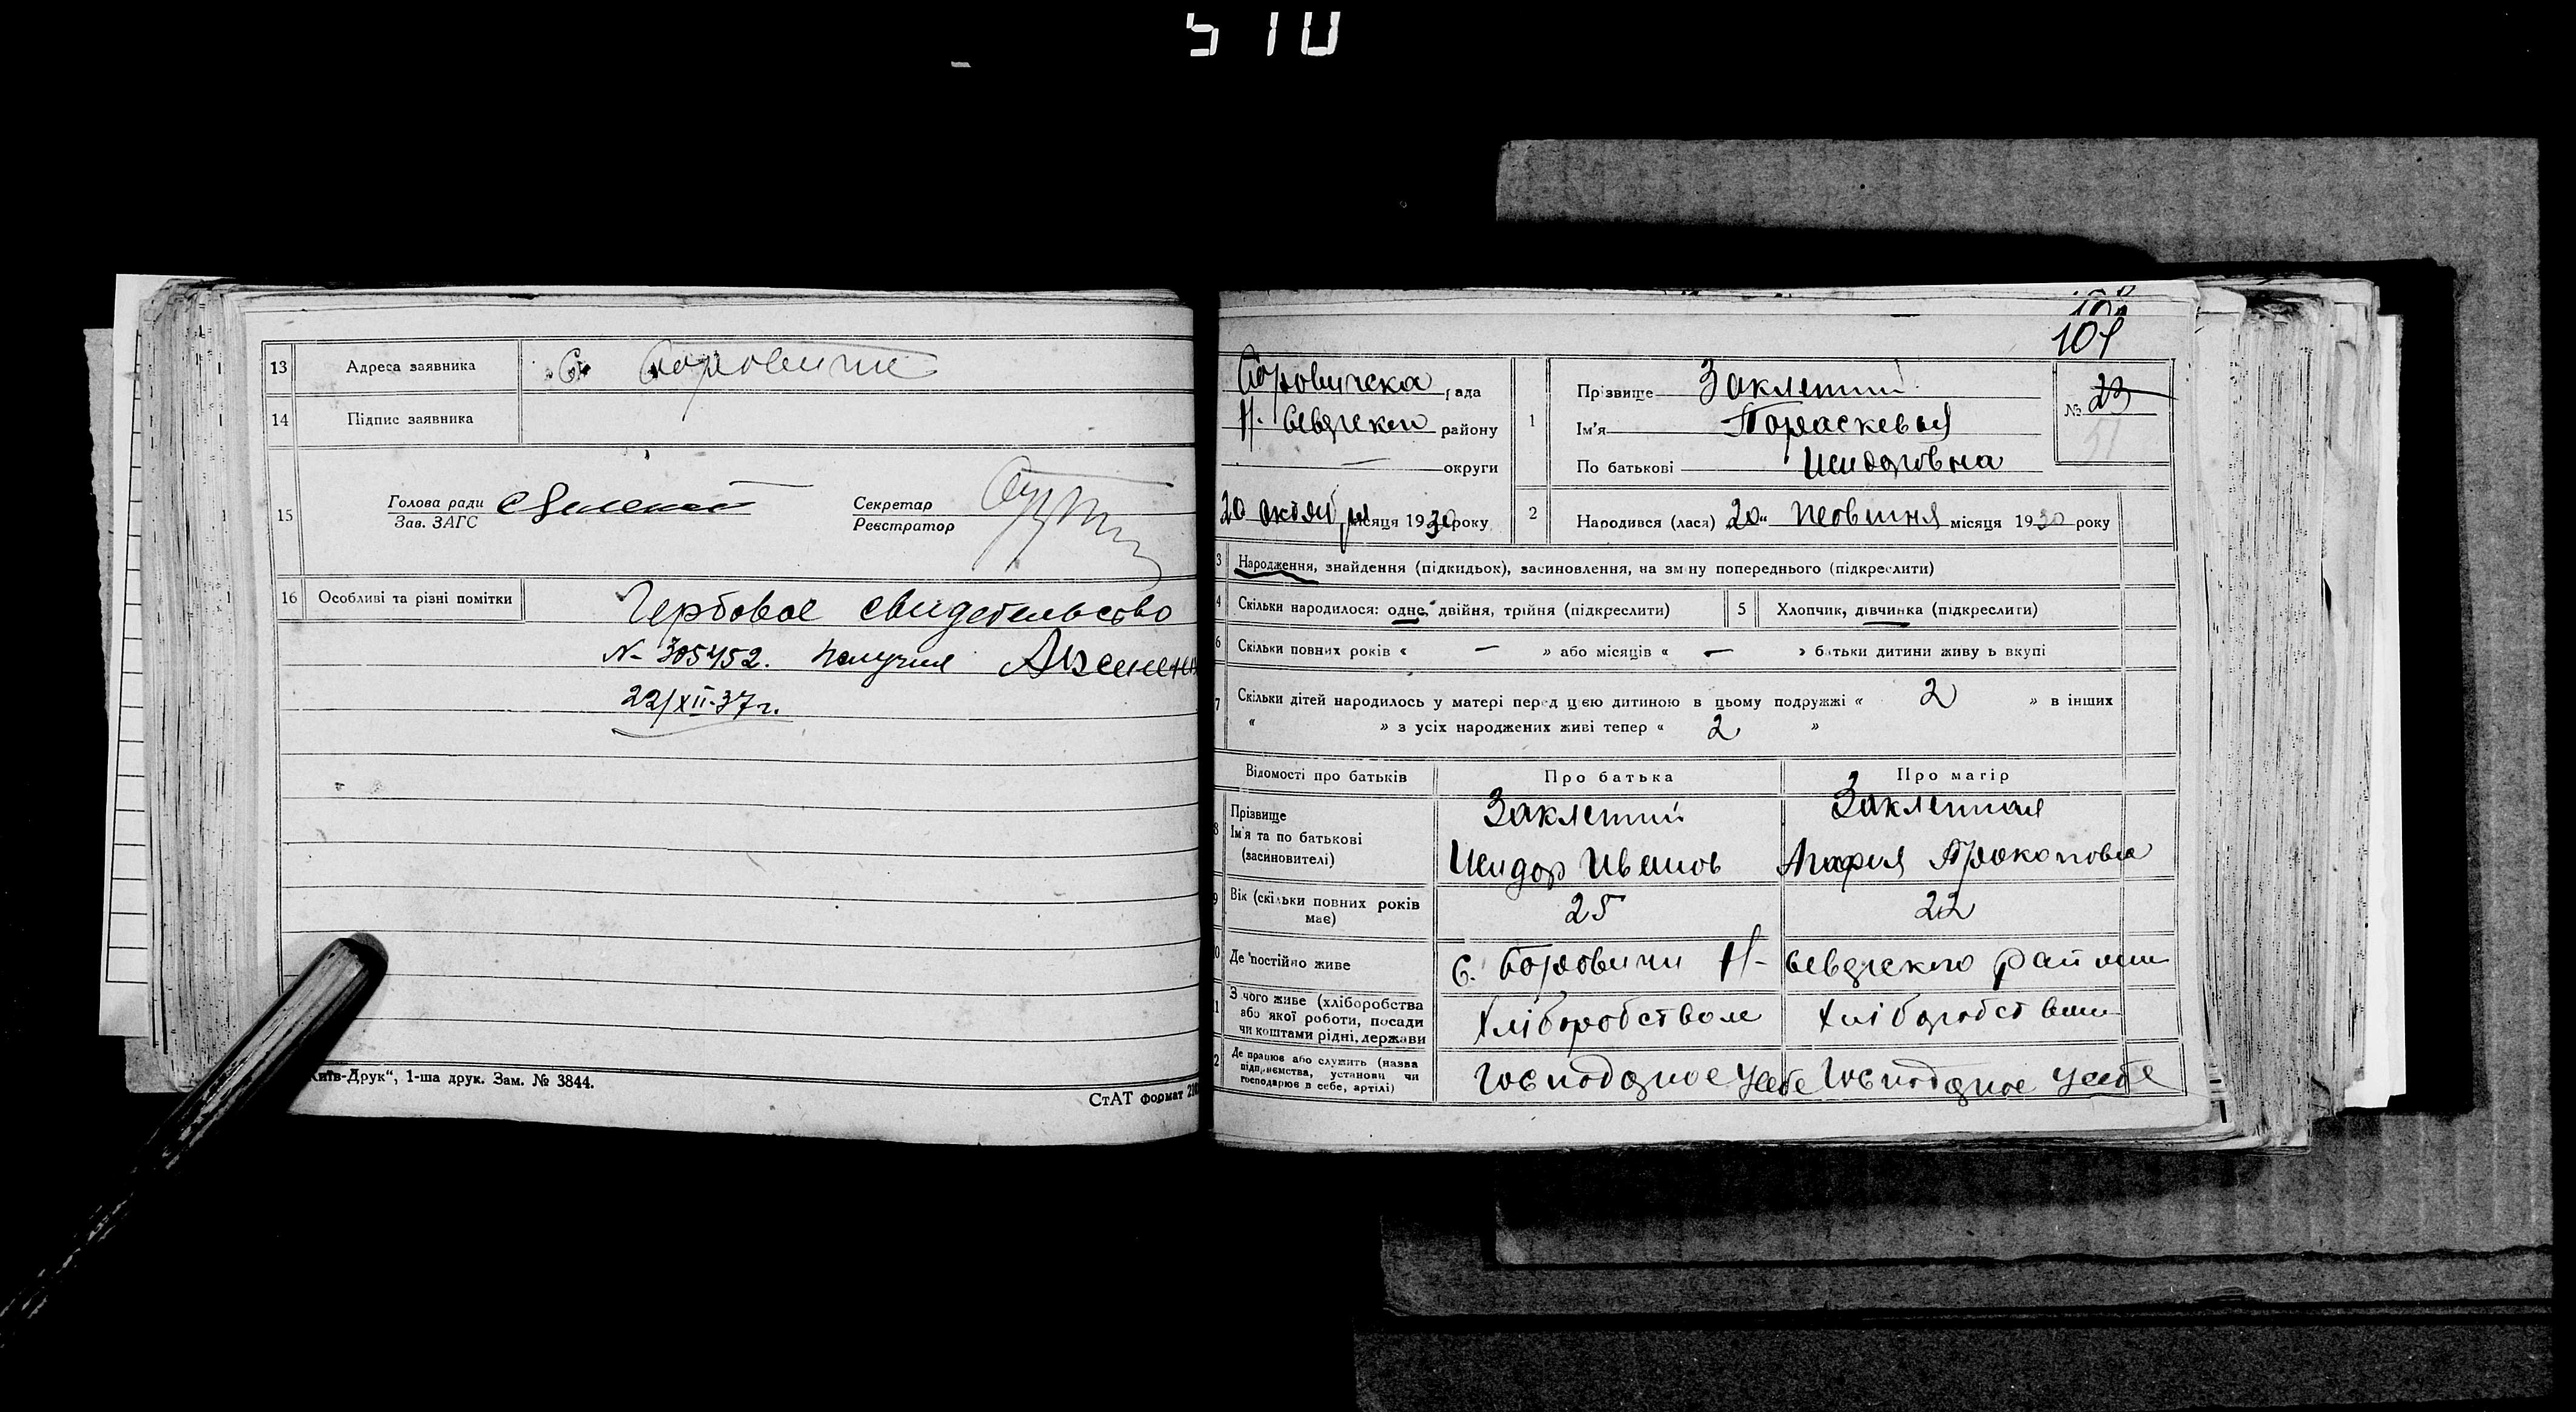 510
13 Адреса заявника с. Боровичи
14 Підпис заявника
15 Голова ради
Зав. ЗАГС
Секретар
Реєстратор
16 Особливі та різні помітки
Гербовое свидетельство
№ 305452. получил
22/XII-37г.
Київ-Друк“, 1-ша друк. Зам. № 3844.
СтАТ формат
104
Боровичска рада
району
— округи
20 октября місяця 1930 року
1 Прізвище Заклетий
Ім'я Параскевья
По батькові Исидоровна
№ 23
51
2 Народився (лася) 20 „ місяця 1930 року
3 Народження, знайдення (підкидьок), засиновлення, на зміну попереднього (підкреслити)
4 Скільки народилося: одне, двійня, трійня (підкреслити) 5 Хлопчик, дівчинка (підкреслити)
6 Скільки повних років « — » або місяців « — » батьки дитини живуть вкупі
7 Скільки дітей народилось у матері перед цією дитиною в цьому подружжі « 2 » в інших
« » з усіх народжених живі тепер « 2 »
Відомості про батьків Про батька Про матір
8 Прізвище
Ім'я та по батькові
(засиновителі)
Заклетий Заклетная
Исидор Иванов Агафия Прокоповна
9 Вік (скільки повних років
має) 25 22
10 Де постійно живе с. Боровичи
11 З чого живе (хліборобства
або якої роботи, посади
чи коштами рідні, держави
Хліборобством Хліборобством
12 Де працює або служить (назва
підприємства, установи чи
господарює в себе, артілі)
у себе у себе